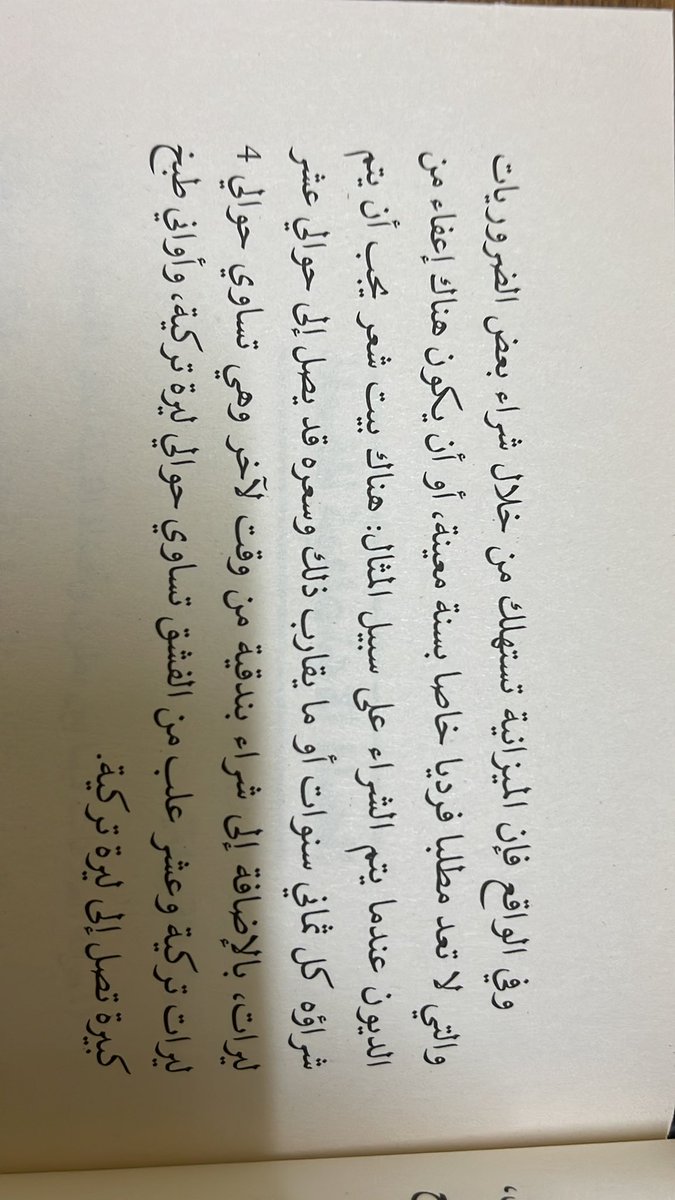 وفي الواقع فإن الميزانية تستهلك من خلال شراء بعض الضروريات
والتي لا تعد مطلبا فرديا خاصا بسنة معينة، أو أن يكون هناك إعفاء من
الديون عندما يتم الشراء على سبيل المثال: هناك بيت شعر يجب أن يتم
شراؤه كل ثماني سنوات أو ما يقارب ذلك وسعره قد يصل إلى حوالي عشر
ليرات، بالإضافة إلى شراء بندقية من وقت لآخر وهي تساوي حوالي 4
ليرات تركية وعشر علب من الفشق تساوي حوالي ليرة تركية، وأواني طبخ
كبيرة تصل إلى ليرة تركية.